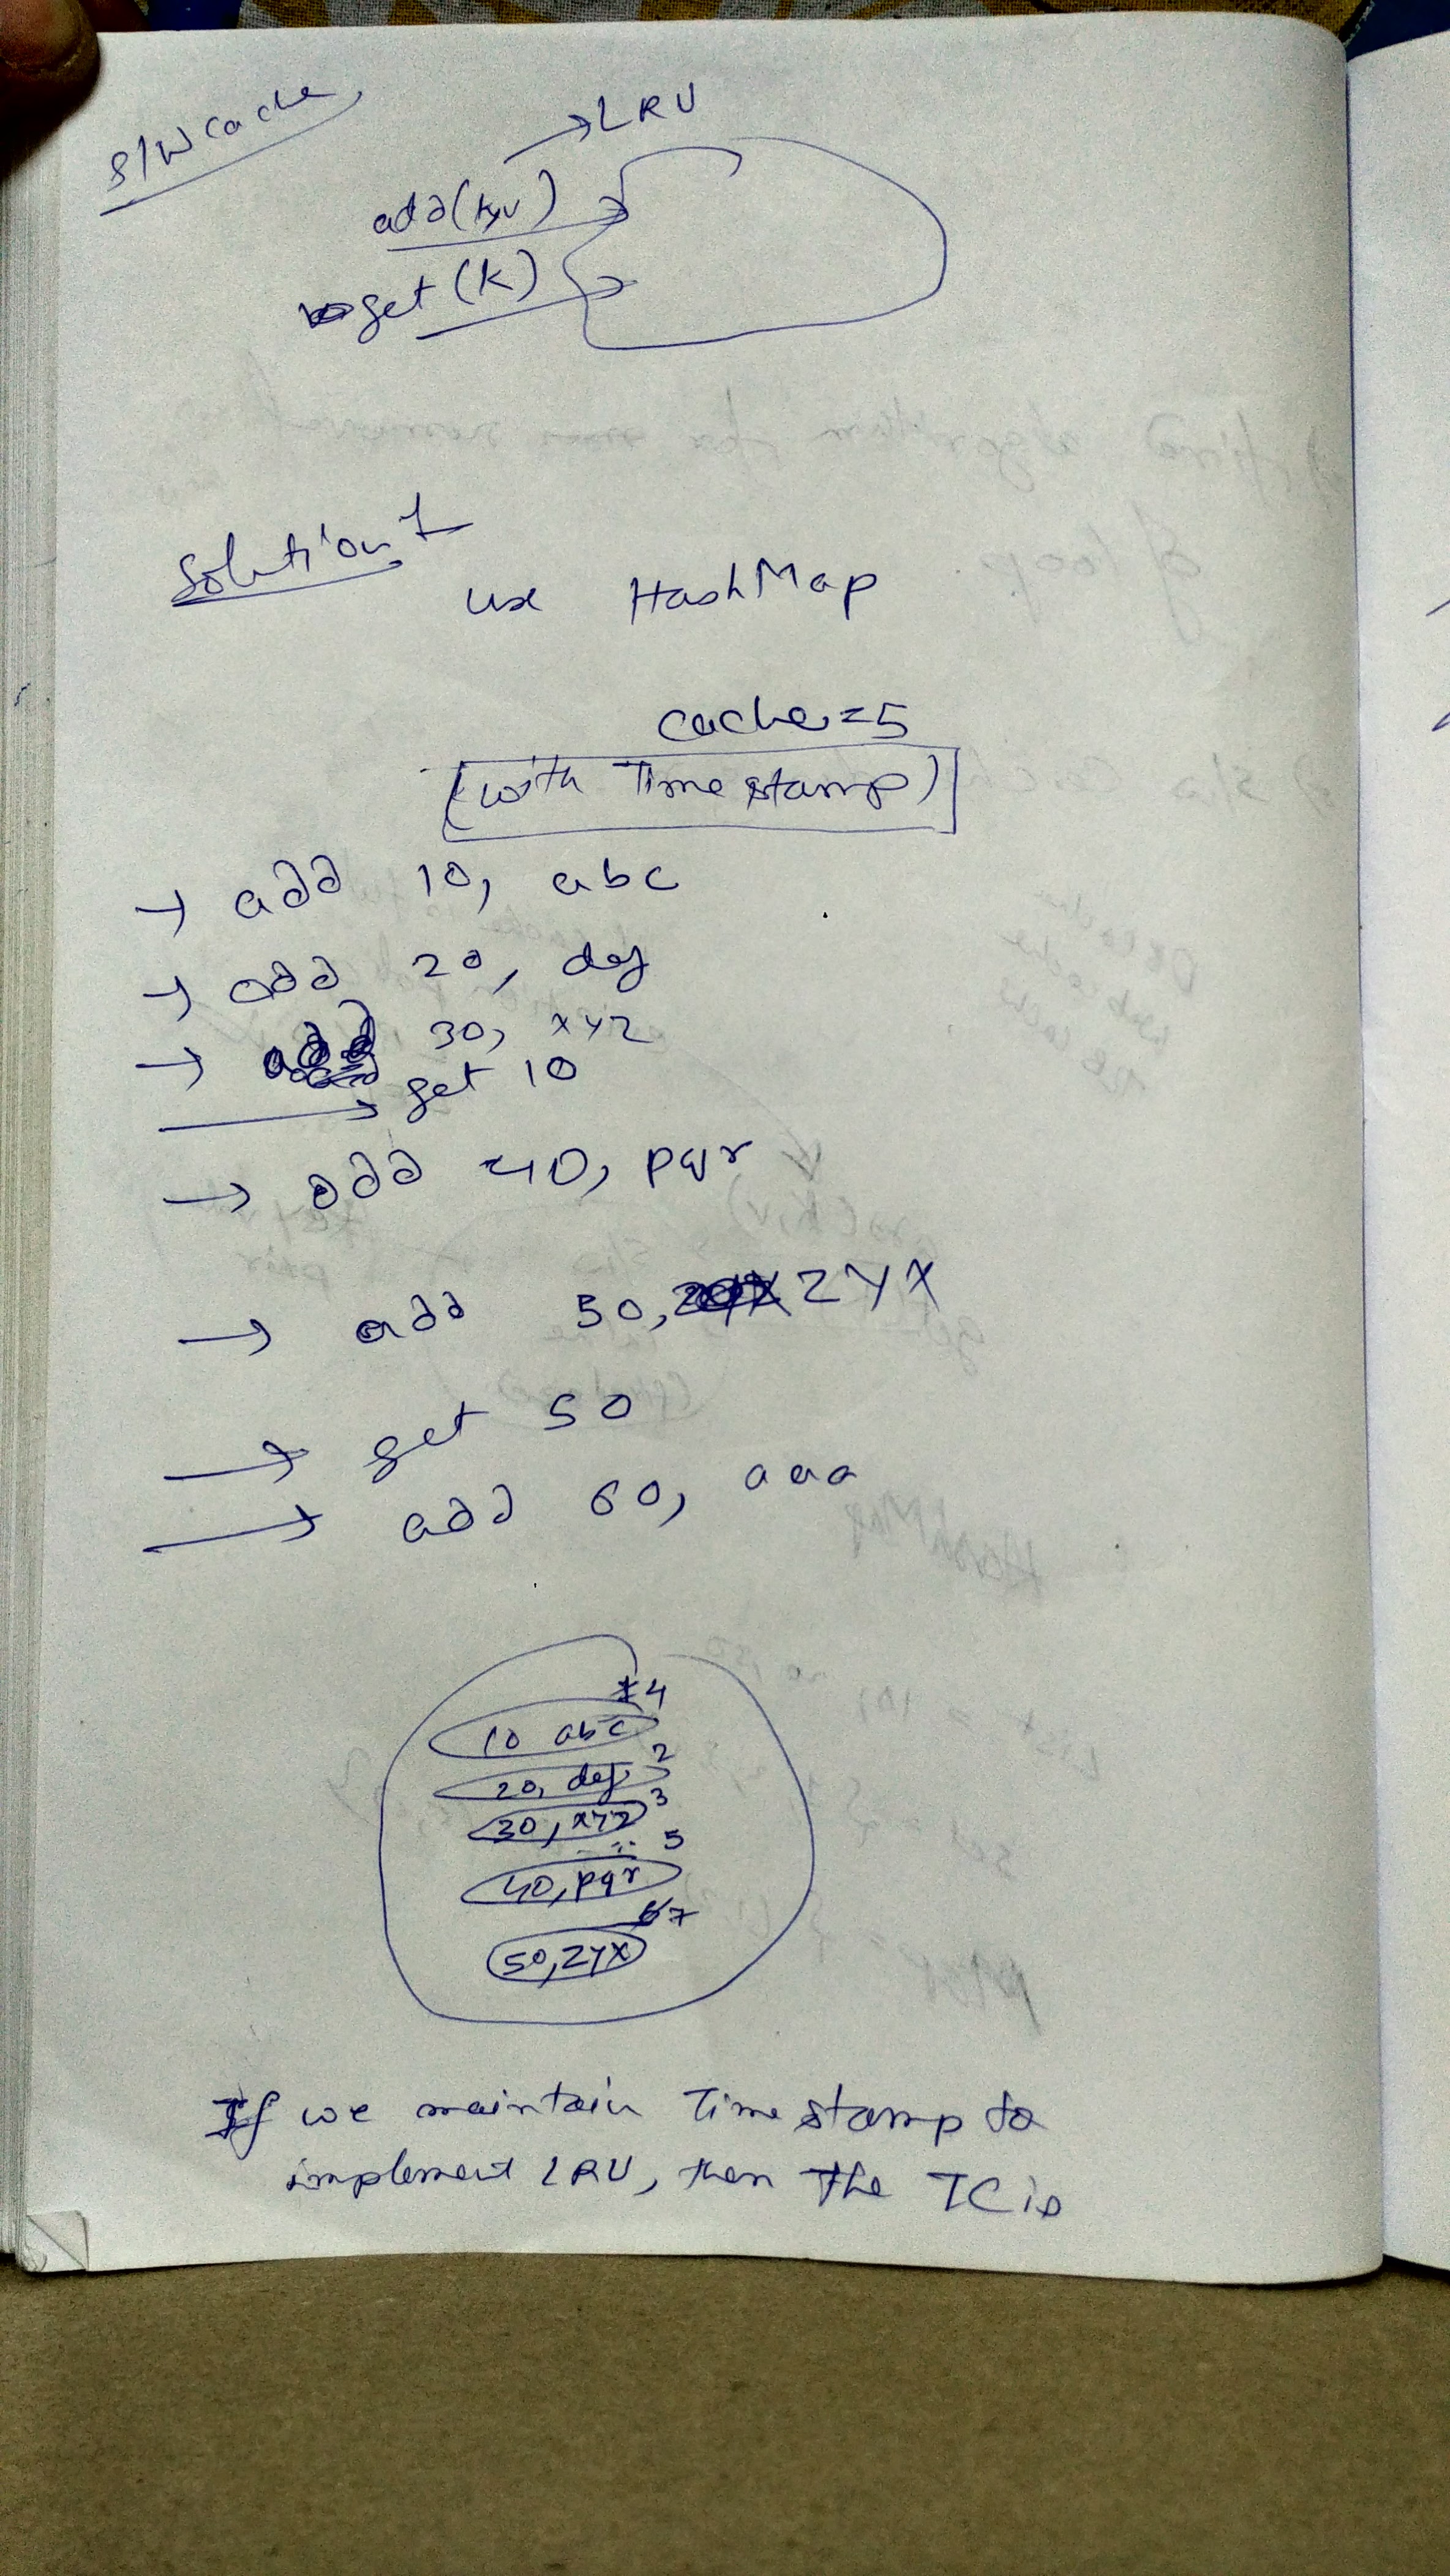 S/W cache
LRU
add(k,v)
get (k)
Solution 1
use HashMap
cache=5
(with Time stamp)
→ add 10, abc
→ add 20, def
→ add 30, xyz
→ get 10
→ add 40, pqr
→ add 50, zyx
→ get 50
→ add 60, aaa
4
10 abc
2
20, def
3
30, xyz
5
40, pqr
6 7
50, zyx
If we maintain Time stamp to
implement LRU, then the TC is